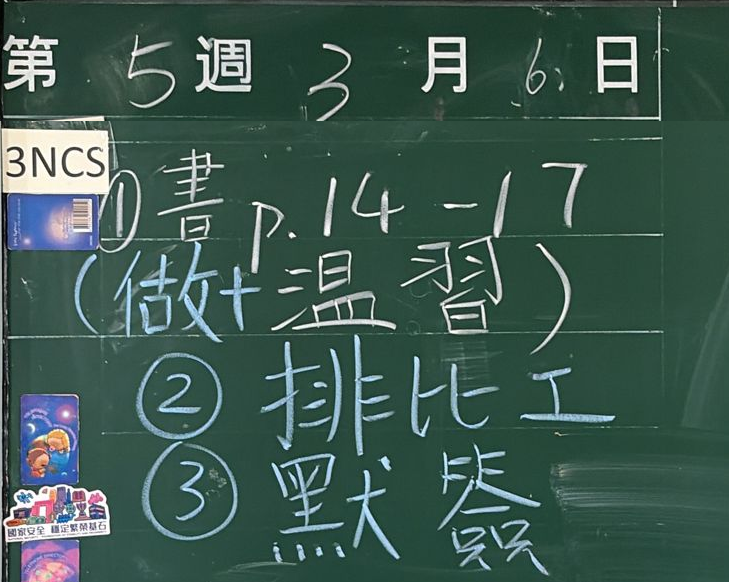 第 5 週 3 月 6 日
3NCS
① 書 p.14-17
(做+溫習)
② 排比工
③ 默簽
國家安全 穩定繁榮基石